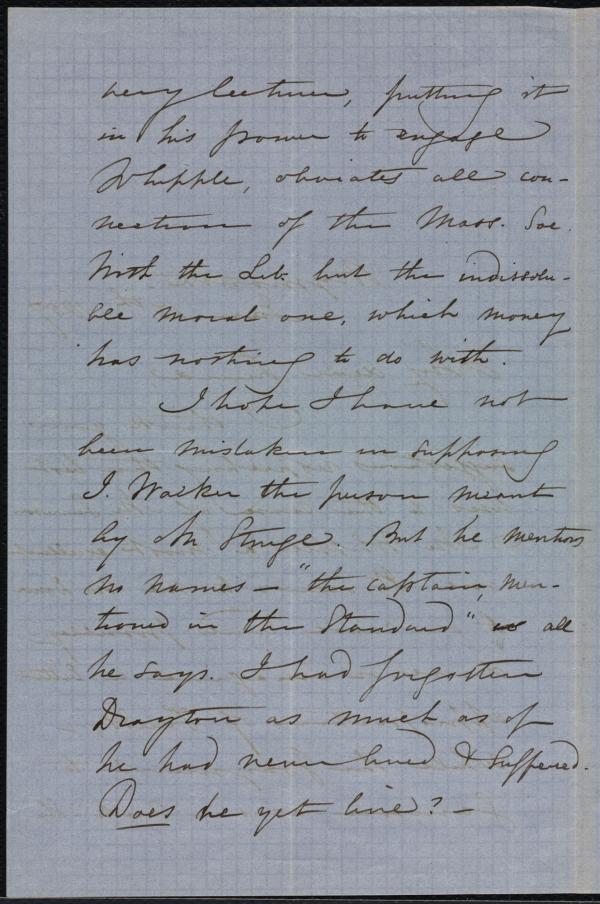 very lecturer, putting it
in his power to engage
Whipple, obviates all con-
nection of the Mass. Soc.
With the Lib. but the indissolu-
ble moral one, which money
has nothing to do with.
I hope I have not
been mistaken in supposing
J. Walker the person meant
by Mr Sturge. But he mentions
no names – "the captain, men-
tioned in the Standard" is all
he says. I had forgotten
Drayton as much as if
he had never lived & suffered.
Does he yet live? –